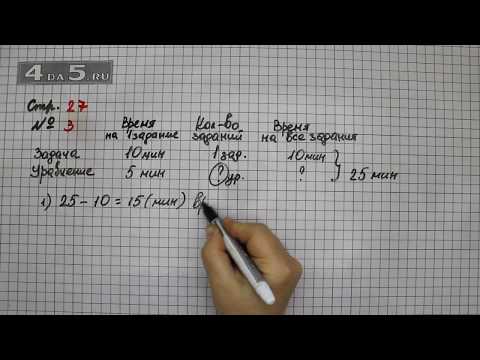 4DA5.RU
Стр. 27
№ 3
Время на 1 задание Кол-во заданий Время на все задания
Задача 10 мин 1 зад. 10 мин
Уравнение 5 мин ? ур. ? 25 мин
1) 25 - 10 = 15 (мин) вр